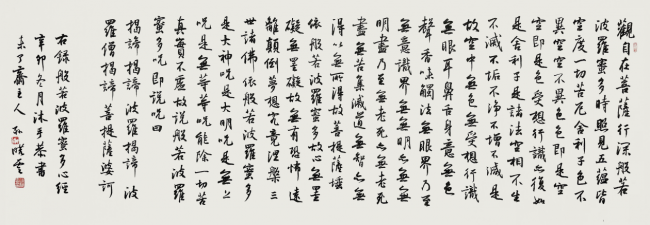 觀自在菩薩行深般若
波羅蜜多時照見五蘊皆
空度一切苦厄舍利子色不
異空空不異色色即是空
空即是色受想行識亦復如
是舍利子是諸法空相不生
不滅不垢不淨不增不減是
故空中無色無受想行識
無眼耳鼻舌身意無色
聲香味觸法無眼界乃至
無意識界無無明亦無無
明盡乃至無老死亦無老死
盡無苦集滅道無智亦無
得以無所得故菩提薩埵
依般若波羅蜜多故心無罣
礙無罣礙故無有恐怖遠
離顛倒夢想究竟涅槃三
世諸佛依般若波羅蜜多
是大神咒是大明咒是無上
咒是無等等咒能除一切苦
真實不虛故說般若波羅
蜜多咒即說咒曰
揭諦揭諦 波羅揭諦 波
羅僧揭諦 菩提薩婆訶
右錄般若波羅蜜多心經
辛卯冬月沐手恭書
未了齋主人